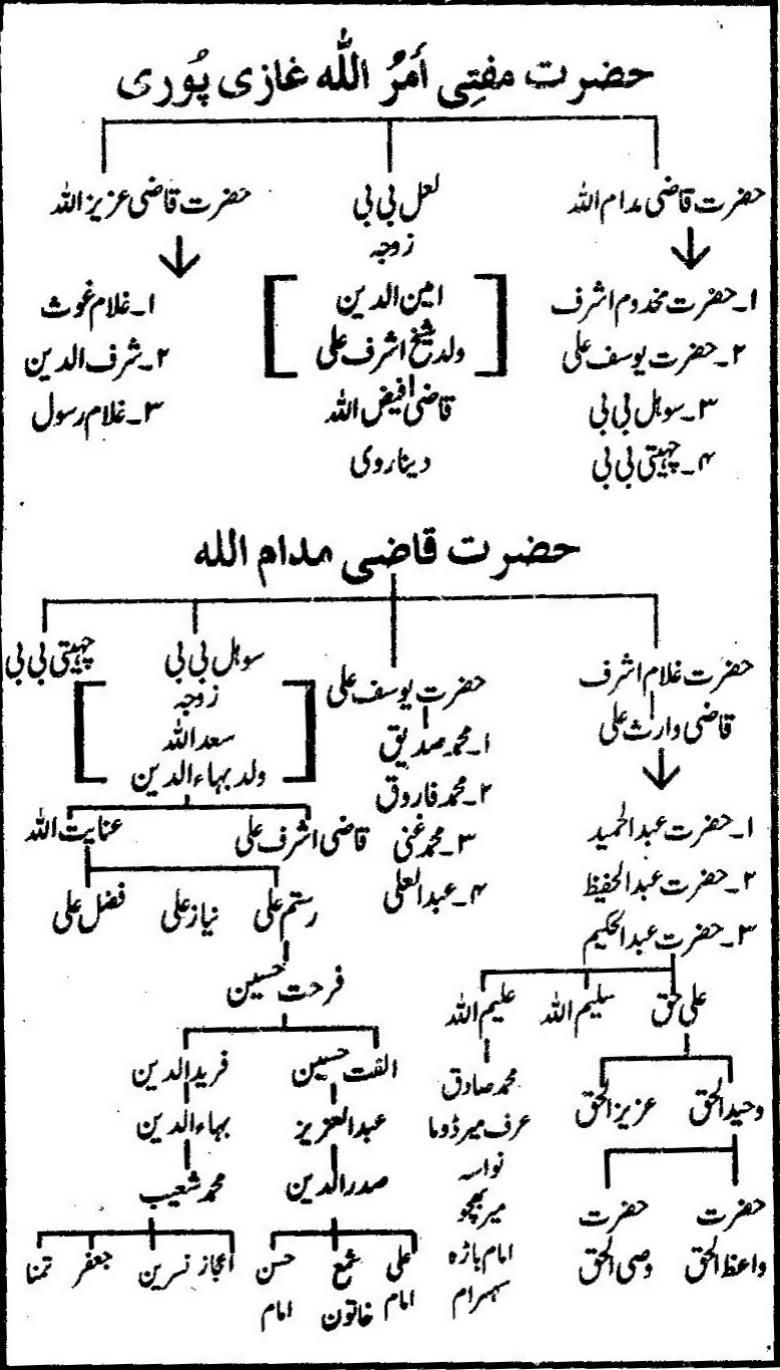 حضرت مفتِی أمرُ اللّٰہ غازی پُوری
حضرت قاضی مدام اللہ
لعل بی بی
حضرت قاضی عزیز اللہ
زوجہ
۱۔حضرت مخدوم اشرف
۲۔حضرت یوسف علی
۳۔سوہل بی بی
۴۔چہیتی بی بی
امین الدین
ولد شیخ اشرف علی
قاضی افیض اللہ
دیناروی
۱۔غلام غوث
۲۔شرف الدین
۳۔غلام رسول
حضرت قاضی مدام اللہ
حضرت غلام اشرف
قاضی وارث علی
۱۔حضرت عبدالحمید
۲۔حضرت عبدالحفیظ
۳۔حضرت عبدالحکیم
علی حق
سلیم اللہ
علیم اللہ
وحید الحق
عزیز الحق
حضرت
واعظ الحق
حضرت
وصی الحق
محمد صادق
عرف میر ڈوما
نواسہ
میر بھچو
امام باڑہ
سہسرام
حضرت یوسف علی
۱۔محمد صدیق
۲۔محمد فاروق
۳۔محمد غنی
۴۔عبدالعلی
سوہل بی بی
زوجہ
سعد اللہ
ولد بہاء الدین
چہیتی بی بی
قاضی اشرف علی
عنایت اللہ
رستم علی
نیاز علی
فضل علی
فرحت حسین
الفت حسین
فرید الدین
عبدالعزیز
بہاء الدین
صدر الدین
محمد شعیب
علی
امام
شمع
خاتون
حسن
امام
اعجاز
نسرین
جعفر
تمنا